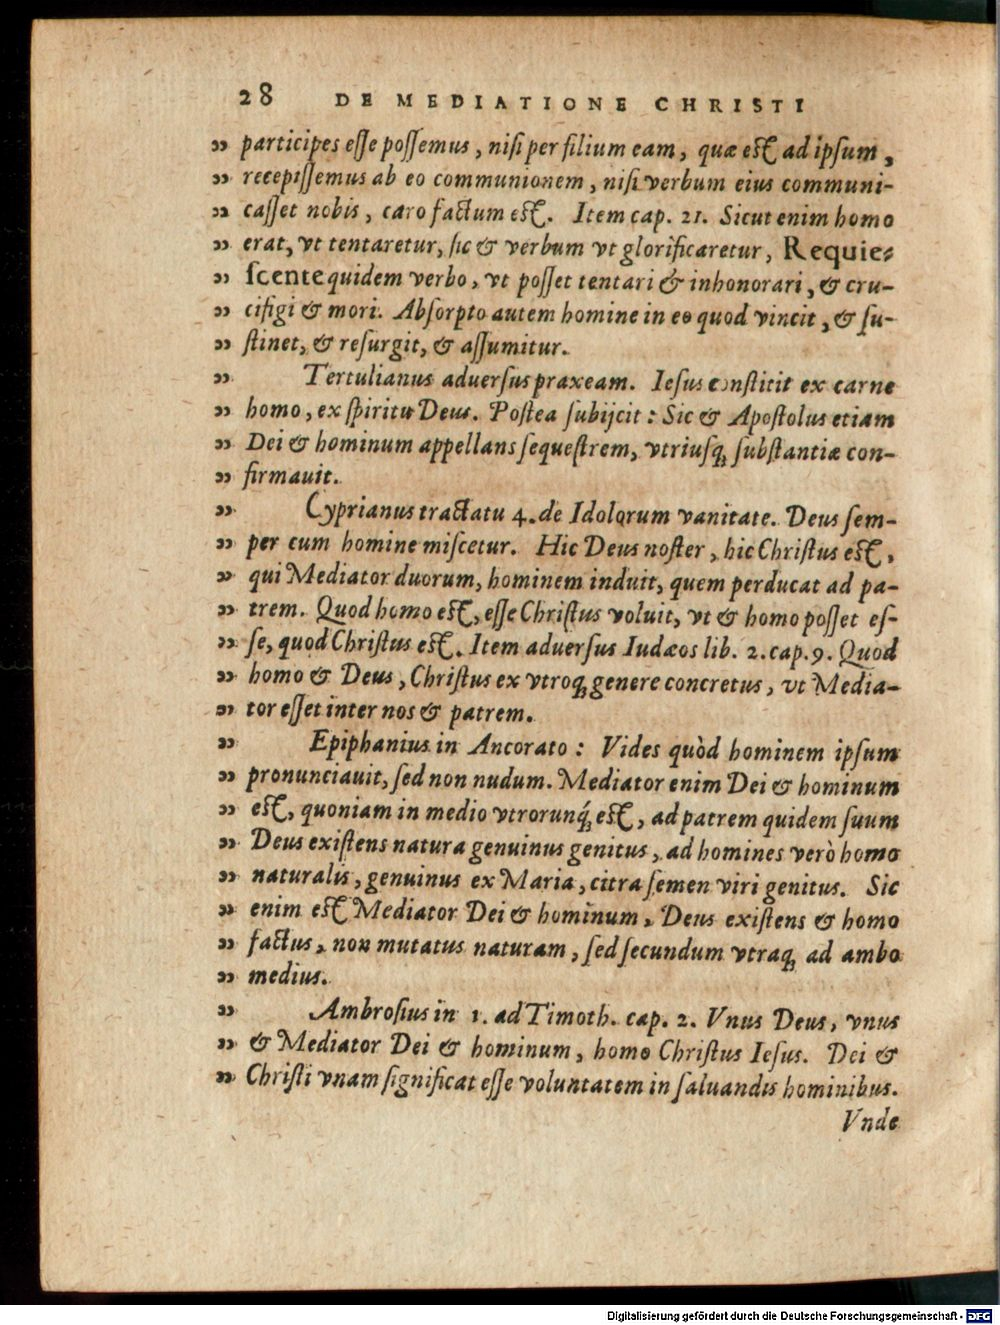 28 DE MEDIATIONE CHRISTI
„ participes eſſe poſſemus, niſi per filium eam, quæ eſt ad ipſum,
„ recepiſſemus ab eo communionem, niſi verbum eius communi-
„ caſſet nobis, caro factum eſt. Item cap. 21. Sicut enim homo
„ erat, vt tentaretur, ſic & verbum vt glorificaretur, Requie-
„ ſcente quidem verbo, vt poſſet tentari & inhonorari, & cru-
„ cifigi & mori. Abſorpto autem homine in eo quod vincit, & ſu-
„ ſtinet, & reſurgit, & aſſumitur.
„ Tertulianus aduerſus praxeam. Ieſus conſtitit ex carne
„ homo, ex ſpiritu Deus. Poſtea ſubijcit: Sic & Apoſtolus etiam
„ Dei & hominum appellans ſequeſtrem, vtriuſq; ſubſtantiæ con-
„ firmauit.
„ Cyprianus tractatu 4. de Idolorum vanitate. Deus ſem-
„ per cum homine miſcetur. Hic Deus noſter, hic Chriſtus eſt,
„ qui Mediator duorum, hominem induit, quem perducat ad pa-
„ trem. Quod homo eſt, eſſe Chriſtus voluit, vt & homo poſſet eſ-
„ ſe, quod Chriſtus eſt. Item aduerſus Iudæos lib. 2. cap. 9. Quod
„ homo & Deus, Chriſtus ex vtroq; genere concretus, vt Media-
„ tor eſſet inter nos & patrem.
„ Epiphanius in Ancorato: Vides quòd hominem ipſum
„ pronunciauit, ſed non nudum. Mediator enim Dei & hominum
„ eſt, quoniam in medio vtrorunq́; eſt, ad patrem quidem ſuum
„ Deus exiſtens natura genuinus genitus, ad homines verò homo
„ naturalis, genuinus ex Maria, citra ſemen viri genitus. Sic
„ enim eſt Mediator Dei & hominum, Deus exiſtens & homo
„ factus, non mutatus naturam, ſed ſecundum vtraq; ad ambo
„ medius.
„ Ambroſius in 1. ad Timoth. cap. 2. Vnus Deus, vnus
„ & Mediator Dei & hominum, homo Chriſtus Ieſus. Dei &
„ Chriſti vnam ſignificat eſſe voluntatem in ſaluandis hominibus.
Vnde
Digitalisierung gefördert durch die Deutsche Forschungsgemeinschaft - DFG